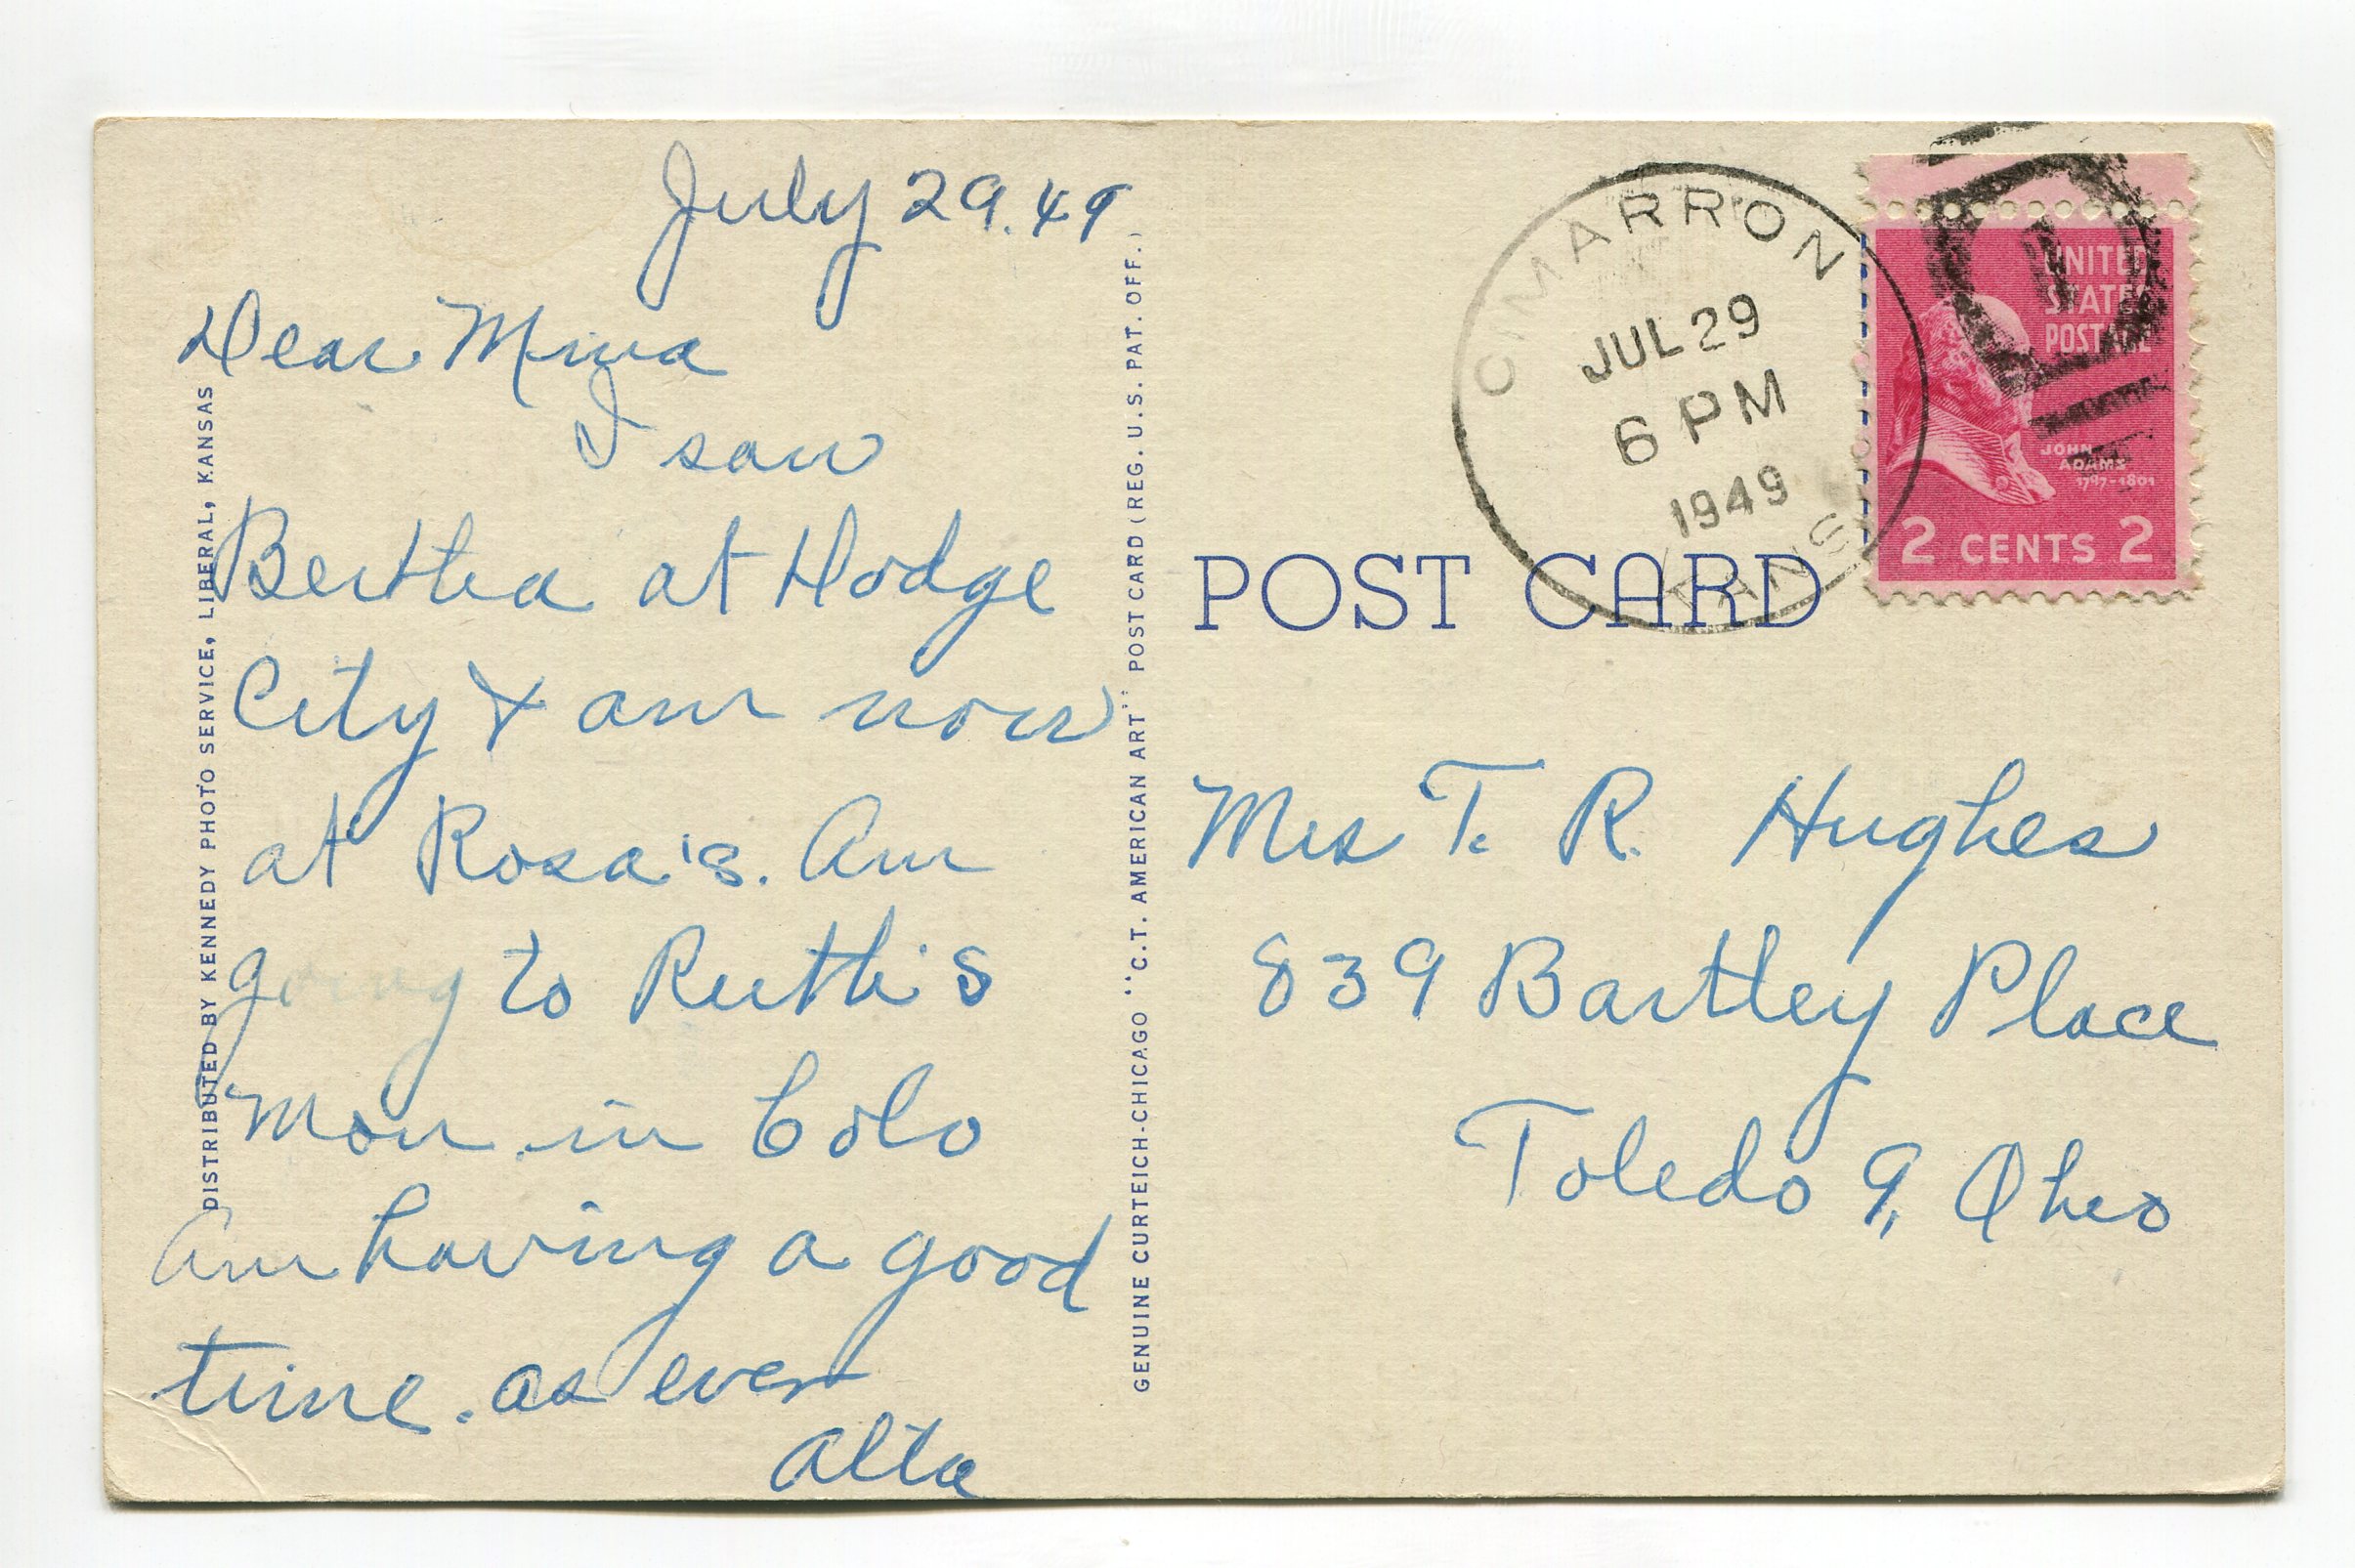 July 29. 49
Dear Mina
I saw
Bertha at Dodge
City & am now
at Rosa's. Am
going to Ruth's
Mon. in Colo
Am having a good
time. as ever
Alta
DISTRIBUTED BY KENNEDY PHOTO SERVICE, LIBERAL, KANSAS
GENUINE CURTEICH-CHICAGO "C.T. AMERICAN ART" POST CARD (REG. U.S. PAT. OFF.)
CIMARRON
JUL 29
6 PM
1949
KANS
UNITED
STATES
POSTAGE
JOHN
ADAMS
1797-1801
2 CENTS 2
POST CARD
Mrs T. R. Hughes
839 Bartley Place
Toledo 9, Ohio